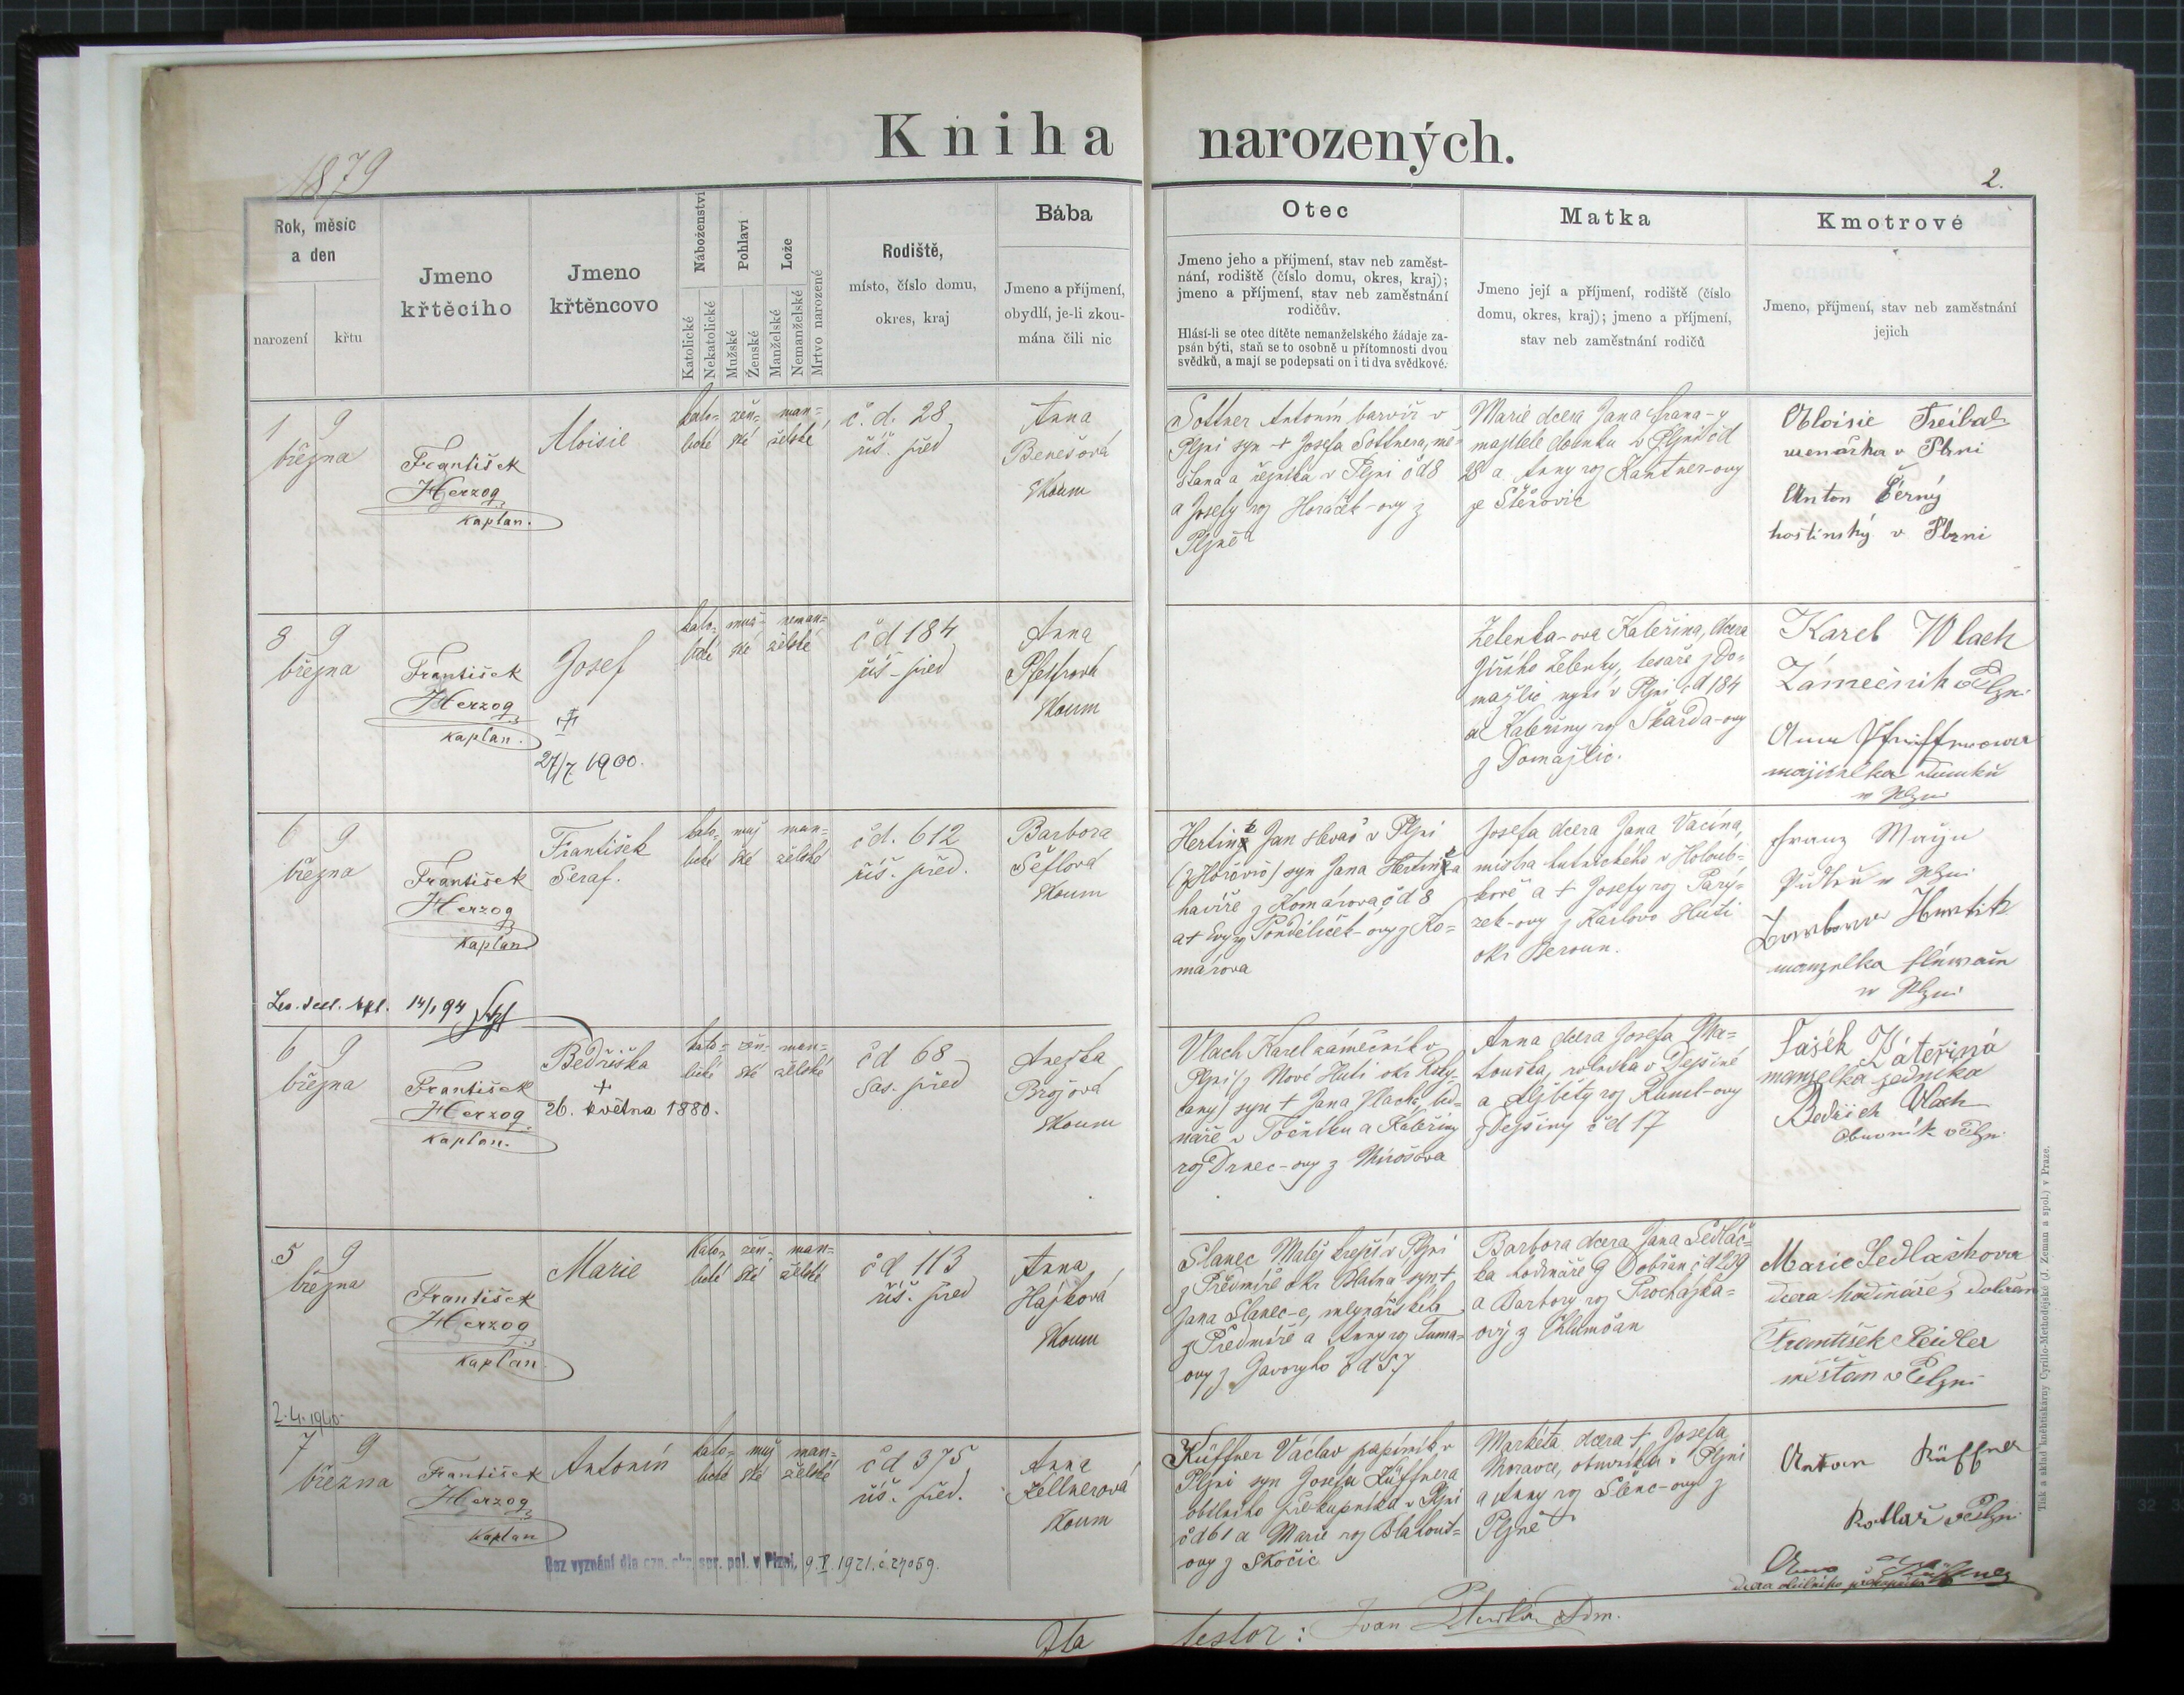 Kniha narozených.
1879
2.
Rok, měsíc
a den
narození
křtu
Jmeno
křtěcího
Jmeno
křtěncovo
Náboženství
Katolické
Nekatolické
Pohlaví
Mužské
Ženské
Lože
Manželské
Nemanželské
Mrtvo narozené
Rodiště,
místo, číslo domu,
okres, kraj
Bába
Jmeno a příjmení,
obydlí, je-li zkou-
mána čili nic
Otec
Jmeno jeho a příjmení, stav neb zaměst-
nání, rodiště (číslo domu, okres, kraj);
jmeno a příjmení, stav neb zaměstnání
rodičův.
Hlásí-li se otec dítěte nemanželského žádaje za-
psán býti, staň se to osobně u přítomnosti dvou
svědků, a mají se podepsati on i ti dva svědkové.
Matka
Jmeno její a příjmení, rodiště (číslo
domu, okres, kraj); jmeno a příjmení,
stav neb zaměstnání rodičů
Kmotrové
Jmeno, příjmení, stav neb zaměstnání
jejich
1 9
března
František
Herzog
kaplan.
Aloisie
kato- žen- man-
lické ské želské
č. d. 28
říš. před
Anna
Benešová
zkoum
Sottner Antonín barvíř v
Plzni syn + Josefa Sottnera, mě-
šťana a řezníka v Plzni čd 8
a Josefy roz Horáček-ovy z
Plzně
Marie dcera Jana
majitele domku v Plzni čd
28 a Anny roz Kantner-ovy
ze Štěnovic
Aloisie Treibal
v Plzni
Anton Černý
hostinský v Plzni
8 9
března
František
Herzog
kaplan.
Josef
+
27/7 1900.
kato- muž- neman-
lické ské želské
čd 184
říš- před
Anna
zkoum
Zelenka-ova Kateřina, dcera
Jiřího Zelenky, tesaře z Do-
mažlic nyní v Plzni čd 184
a Kateřiny roz Škarda-ovy
z Domažlic.
Karel Wlach
Zámečník v Plzni
Anna
majitelka domku
w Plzni
6 9
března
František
Herzog
kaplan
František
Seraf.
kato- muž man-
lické ské želské
čd. 612
říš. před.
Barbora
Šeflová
zkoum
Jan slevač v Plzni
(z Hořovic) syn Jana
havíře z Komárova čd 8
a + Evy roz Pondělíček-ovy z Ko-
márova
Josefa dcera Jana Vacína,
mistra hutnického v Holoub-
kově a + Josefy roz Parý-
zek-ovy z Karlovo Huti
okr Beroun.
Franz
w Plzni
manzelka
w Plzni
14/1 94
6 9
března
František
Herzog
kaplan.
Bedřiška
+
26. května 1880.
kato- žen- man-
lické ské želské
čd 68
Sas. před
Anežka
Brojová
zkoum
Vlach Karel zámečník v
Plzni (z Nové Huti okr Roky-
cany) syn + Jana Vlacha,
v Točníku a Kateřiny
roz Drnec-ovy z Mirošova
Anna dcera Josefa Ma-
touška, rolníka v Dejšině
a Alžběty roz Runt-ovy
z Dejšiny čd 17
Kateřina
manzelka zedníka
Bedřich Vlach
Obuvník v Plzni
5 9
března
František
Herzog
kaplan
Marie
kato- žen- man-
lické ské želské
čd 113
říš. před
Anna
Hájková
zkoum
Slanec Matěj krejčí v Plzni
z Předmíře okr Blatna syn +
Jana Slanec-e, mlynářského
z Předmíře a Anny roz Tuma-
ovy z Javoryho čd 57
Barbora dcera Jana Sedláč-
ka hodináře z Dobřan čd 239
a Barbory roz Procházka-
ový z Chlumčan
Marie Sedlačkova
dcera hodináře z Dobřan
František Seidler
měšťan v Plzni
2.4.1940
7 9
března
František
Herzog
kaplan
Antonín
kato- muž man-
lické ské želské
čd 375
říš. před.
Anna
Kellnerová
zkoum
Küffner Václav papírník v
Plzni syn Josefa Küffnera
obilního překupníka v Plzni
čd 61 a Marie roz
ovy z Skočic
Markéta dcera + Josefa
Moravce, obuvníka v Plzni
a Anny roz Šlenc-ovy z
Plzně
Anton Küffner
Kotlář v Plzni
Anna Küffner
dcera obilního překupníka
Bez vyznání dle ozn. okr. spr. pol. v Plzni, 9.V. 1921. č. 27059.
Ita
testor: Ivan Adm.
Tisk a sklad knihtiskárny Cyrillo-Methodějské (J. Zeman a spol.) v Praze.